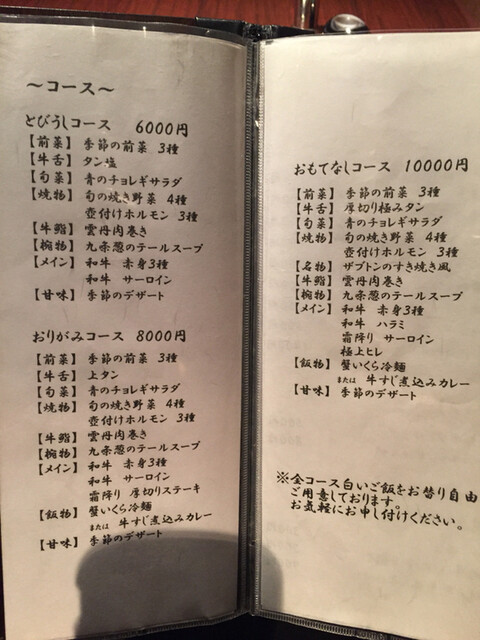 ～コース～
とびうしコース 6000円
【前菜】 季節の前菜 3種
【牛舌】 タン塩
【旬菜】 青のチョレギサラダ
【焼物】 旬の焼き野菜 4種
壺付けホルモン 3種
【牛鮨】 雲丹肉巻き
【椀物】 九条葱のテールスープ
【メイン】 和牛 赤身3種
和牛 サーロイン
【甘味】 季節のデザート
おりがみコース 8000円
【前菜】 季節の前菜 3種
【牛舌】 上タン
【旬菜】 青のチョレギサラダ
【焼物】 旬の焼き野菜 4種
壺付けホルモン 3種
【牛鮨】 雲丹肉巻き
【椀物】 九条葱のテールスープ
【メイン】 和牛 赤身3種
和牛 サーロイン
霜降り 厚切りステーキ
【飯物】 蟹いくら冷麺
または 牛すじ煮込みカレー
【甘味】 季節のデザート
おもてなしコース 10000円
【前菜】 季節の前菜 3種
【牛舌】 厚切り極みタン
【旬菜】 青のチョレギサラダ
【焼物】 旬の焼き野菜 4種
壺付けホルモン 3種
【名物】 ザブトンのすき焼き風
【牛鮨】 雲丹肉巻き
【椀物】 九条葱のテールスープ
【メイン】 和牛 赤身3種
和牛 ハラミ
霜降り サーロイン
極上ヒレ
【飯物】 蟹いくら冷麺
または 牛すじ煮込みカレー
【甘味】 季節のデザート
※全コース白いご飯をお替り自由
ご用意しております。
お気軽にお申し付けください。